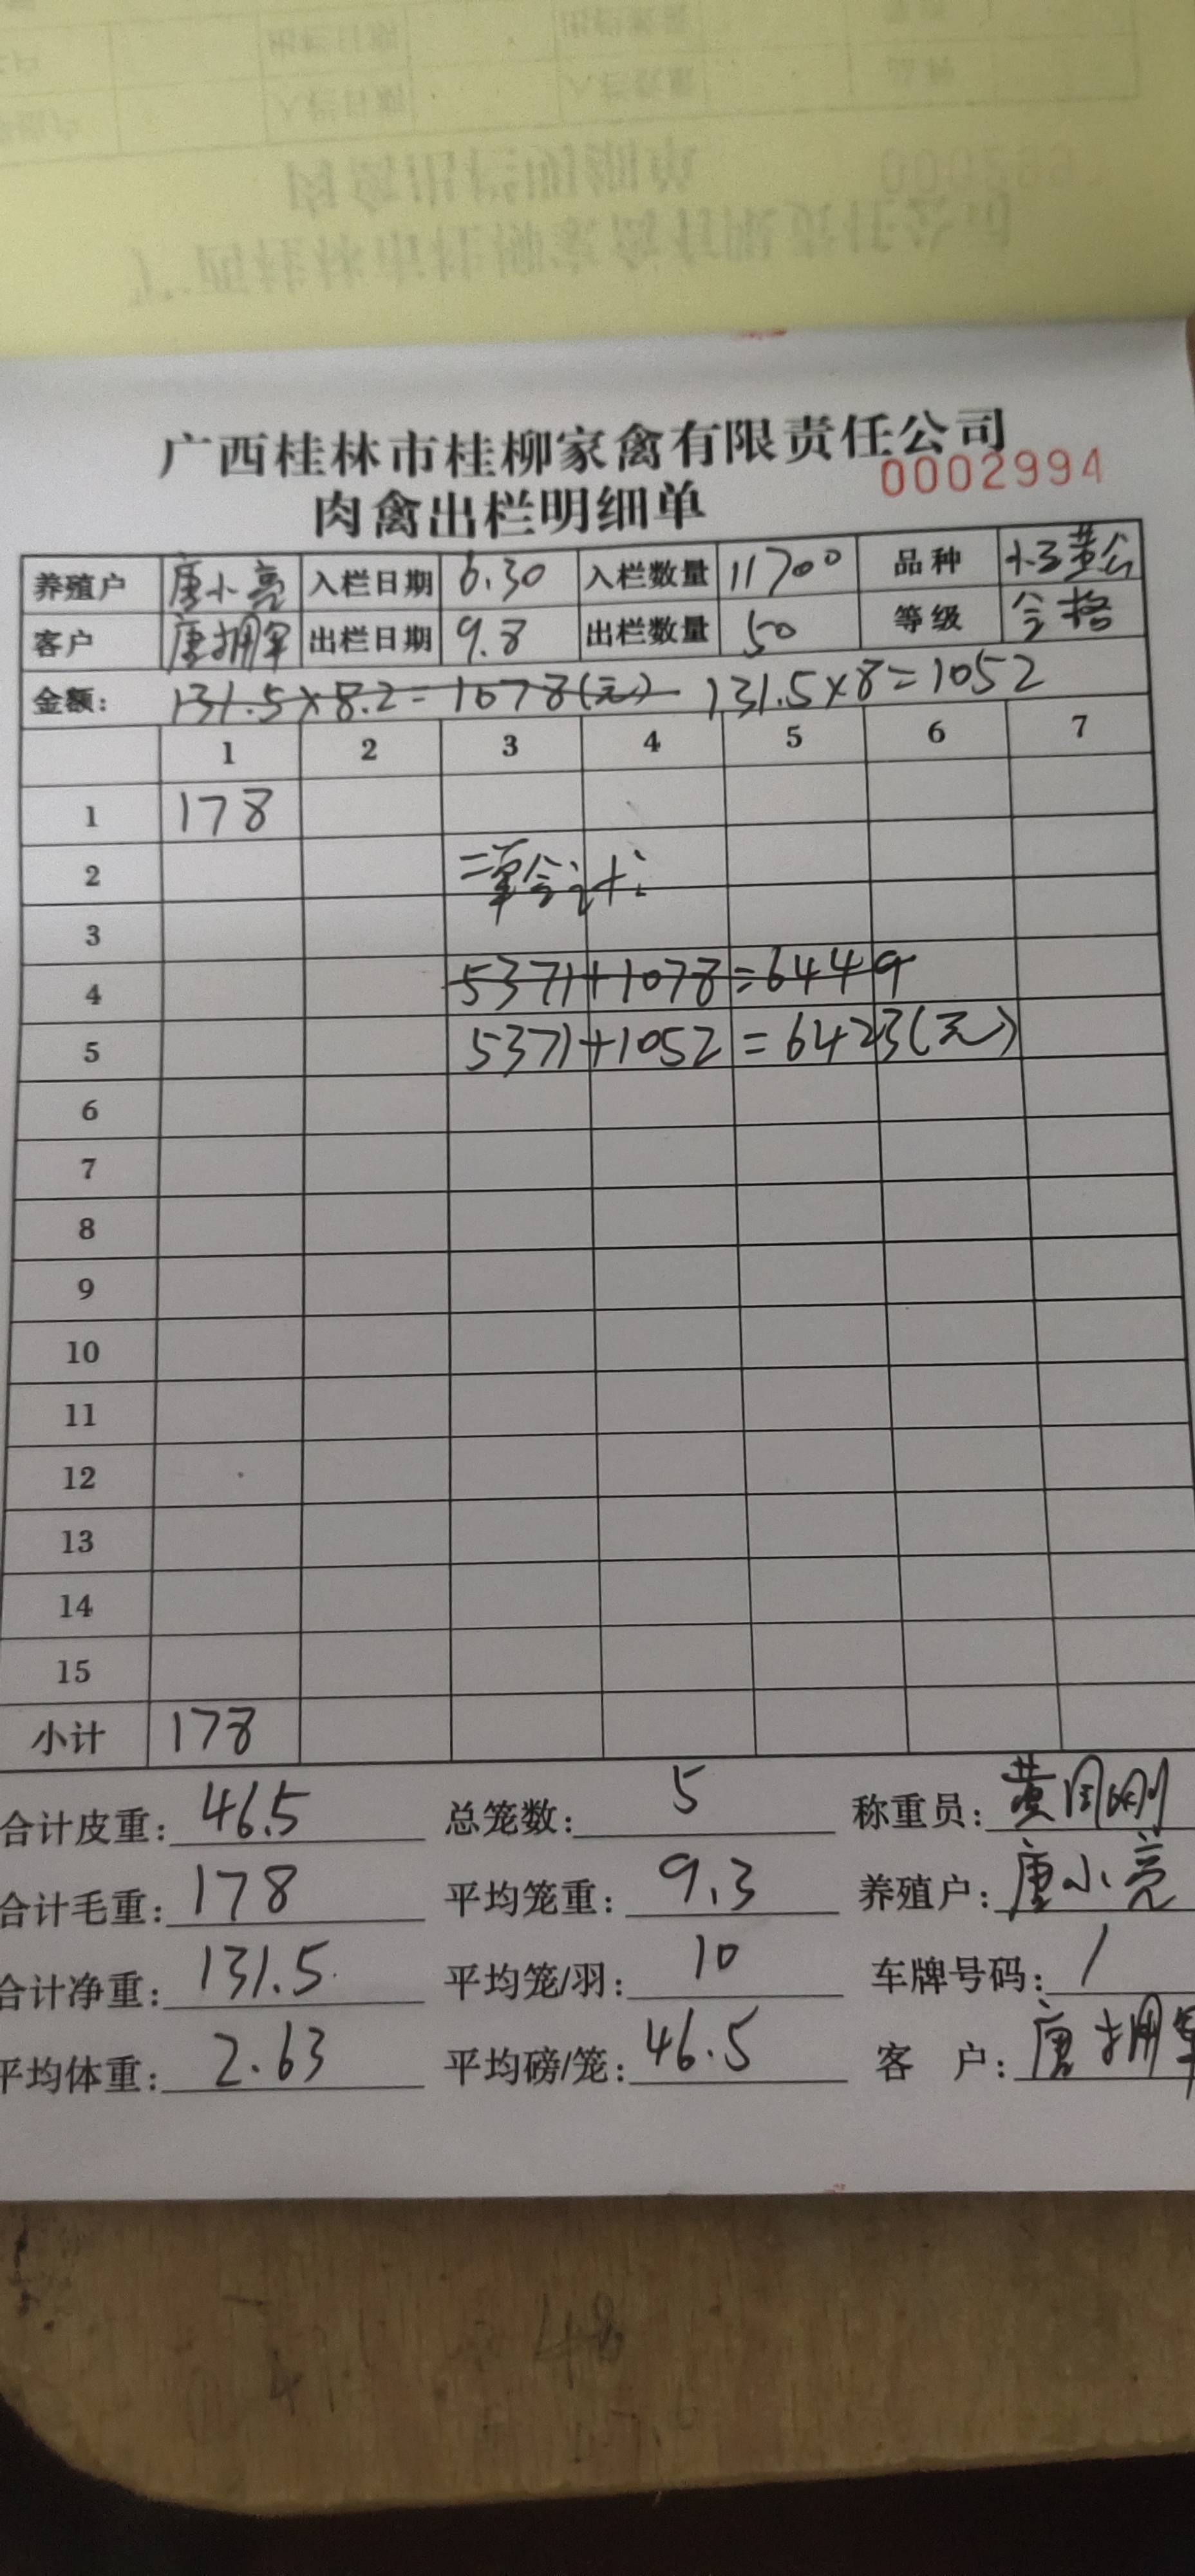 广西桂林市桂柳家禽有限责任公司
0002994
肉禽出栏明细单
养殖户 唐小亮 入栏日期 6.30 入栏数量 11700 品种 小三黄公
客户 唐拥军 出栏日期 9.8 出栏数量 50 等级 合格
金额: 131.5×8.2=1078(元) 131.5×8=1052
1 2 3 4 5 6 7
1 178
2 二单合计:
3
4 5371+1078=6449
5 5371+1052=6423(元)
6
7
8
9
10
11
12
13
14
15
小计 178
合计皮重: 46.5 总笼数: 5 称重员: 黄刚
合计毛重: 178 平均笼重: 9.3 养殖户: 唐小亮
合计净重: 131.5 平均笼/羽: 10 车牌号码: /
平均体重: 2.63 平均磅/笼: 46.5 客 户: 唐拥军